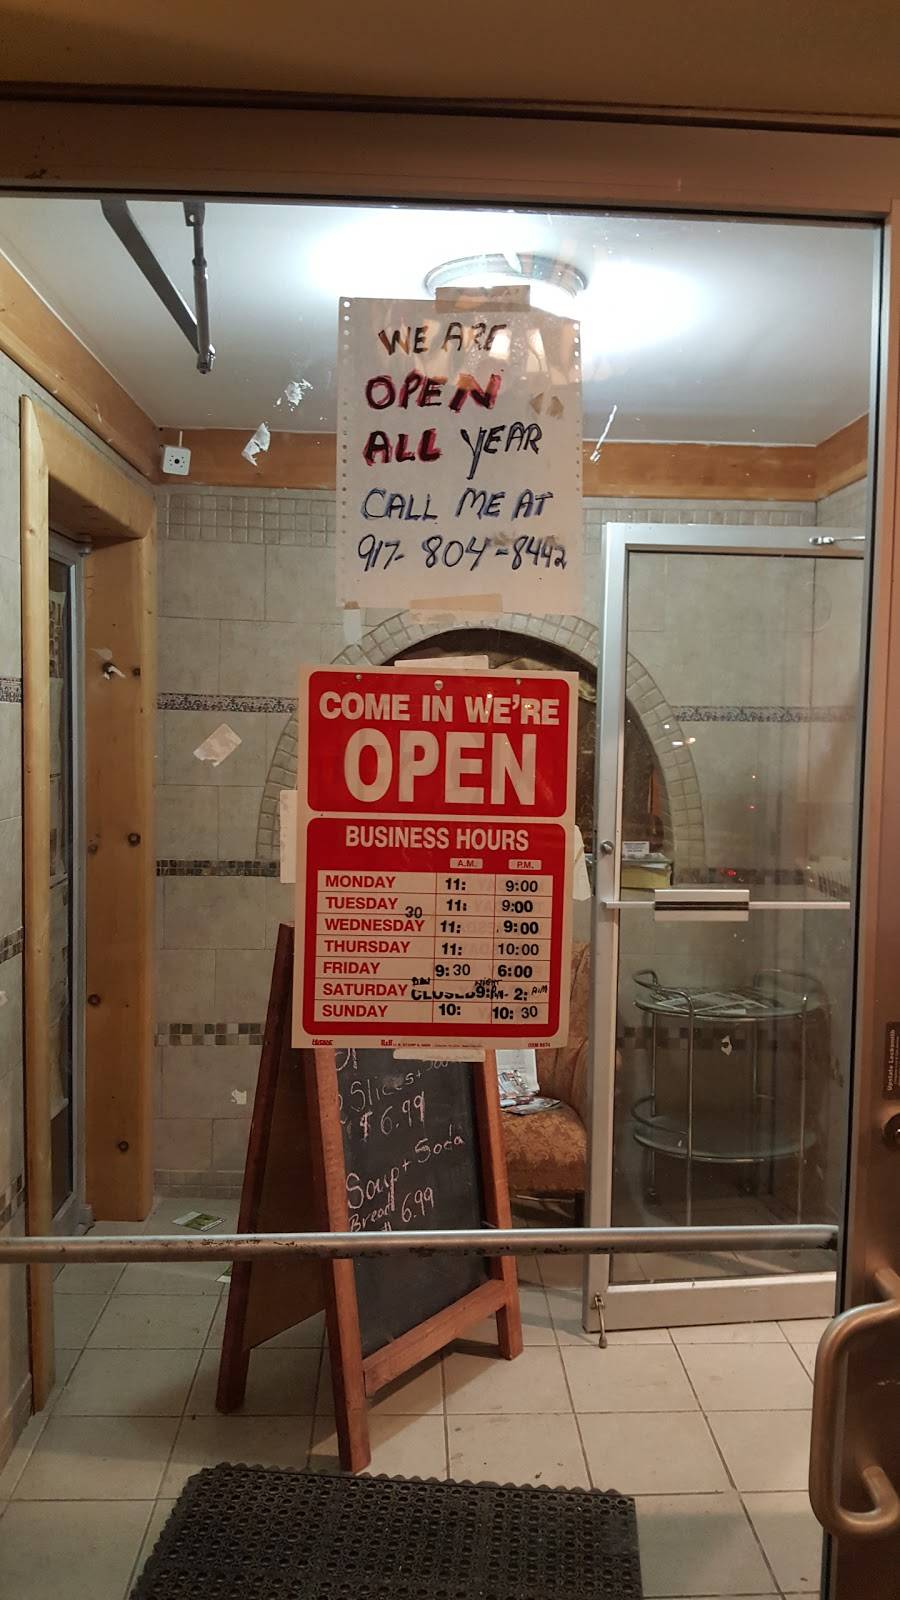 WE ARE
OPEN
ALL YEAR
CALL ME AT
917-804-8442
COME IN WE'RE
OPEN
BUSINESS HOURS
A.M. P.M.
MONDAY 11: 9:00
TUESDAY 11: 9:00
30
WEDNESDAY 11: 9:00
THURSDAY 11: 10:00
FRIDAY 9:30 6:00
SATURDAY CLOSED 9: 2: AM
SUNDAY 10: 10:30
Slices+
$6.99
Soup+ Soda
Bread 6.99
Upstate Locksmith